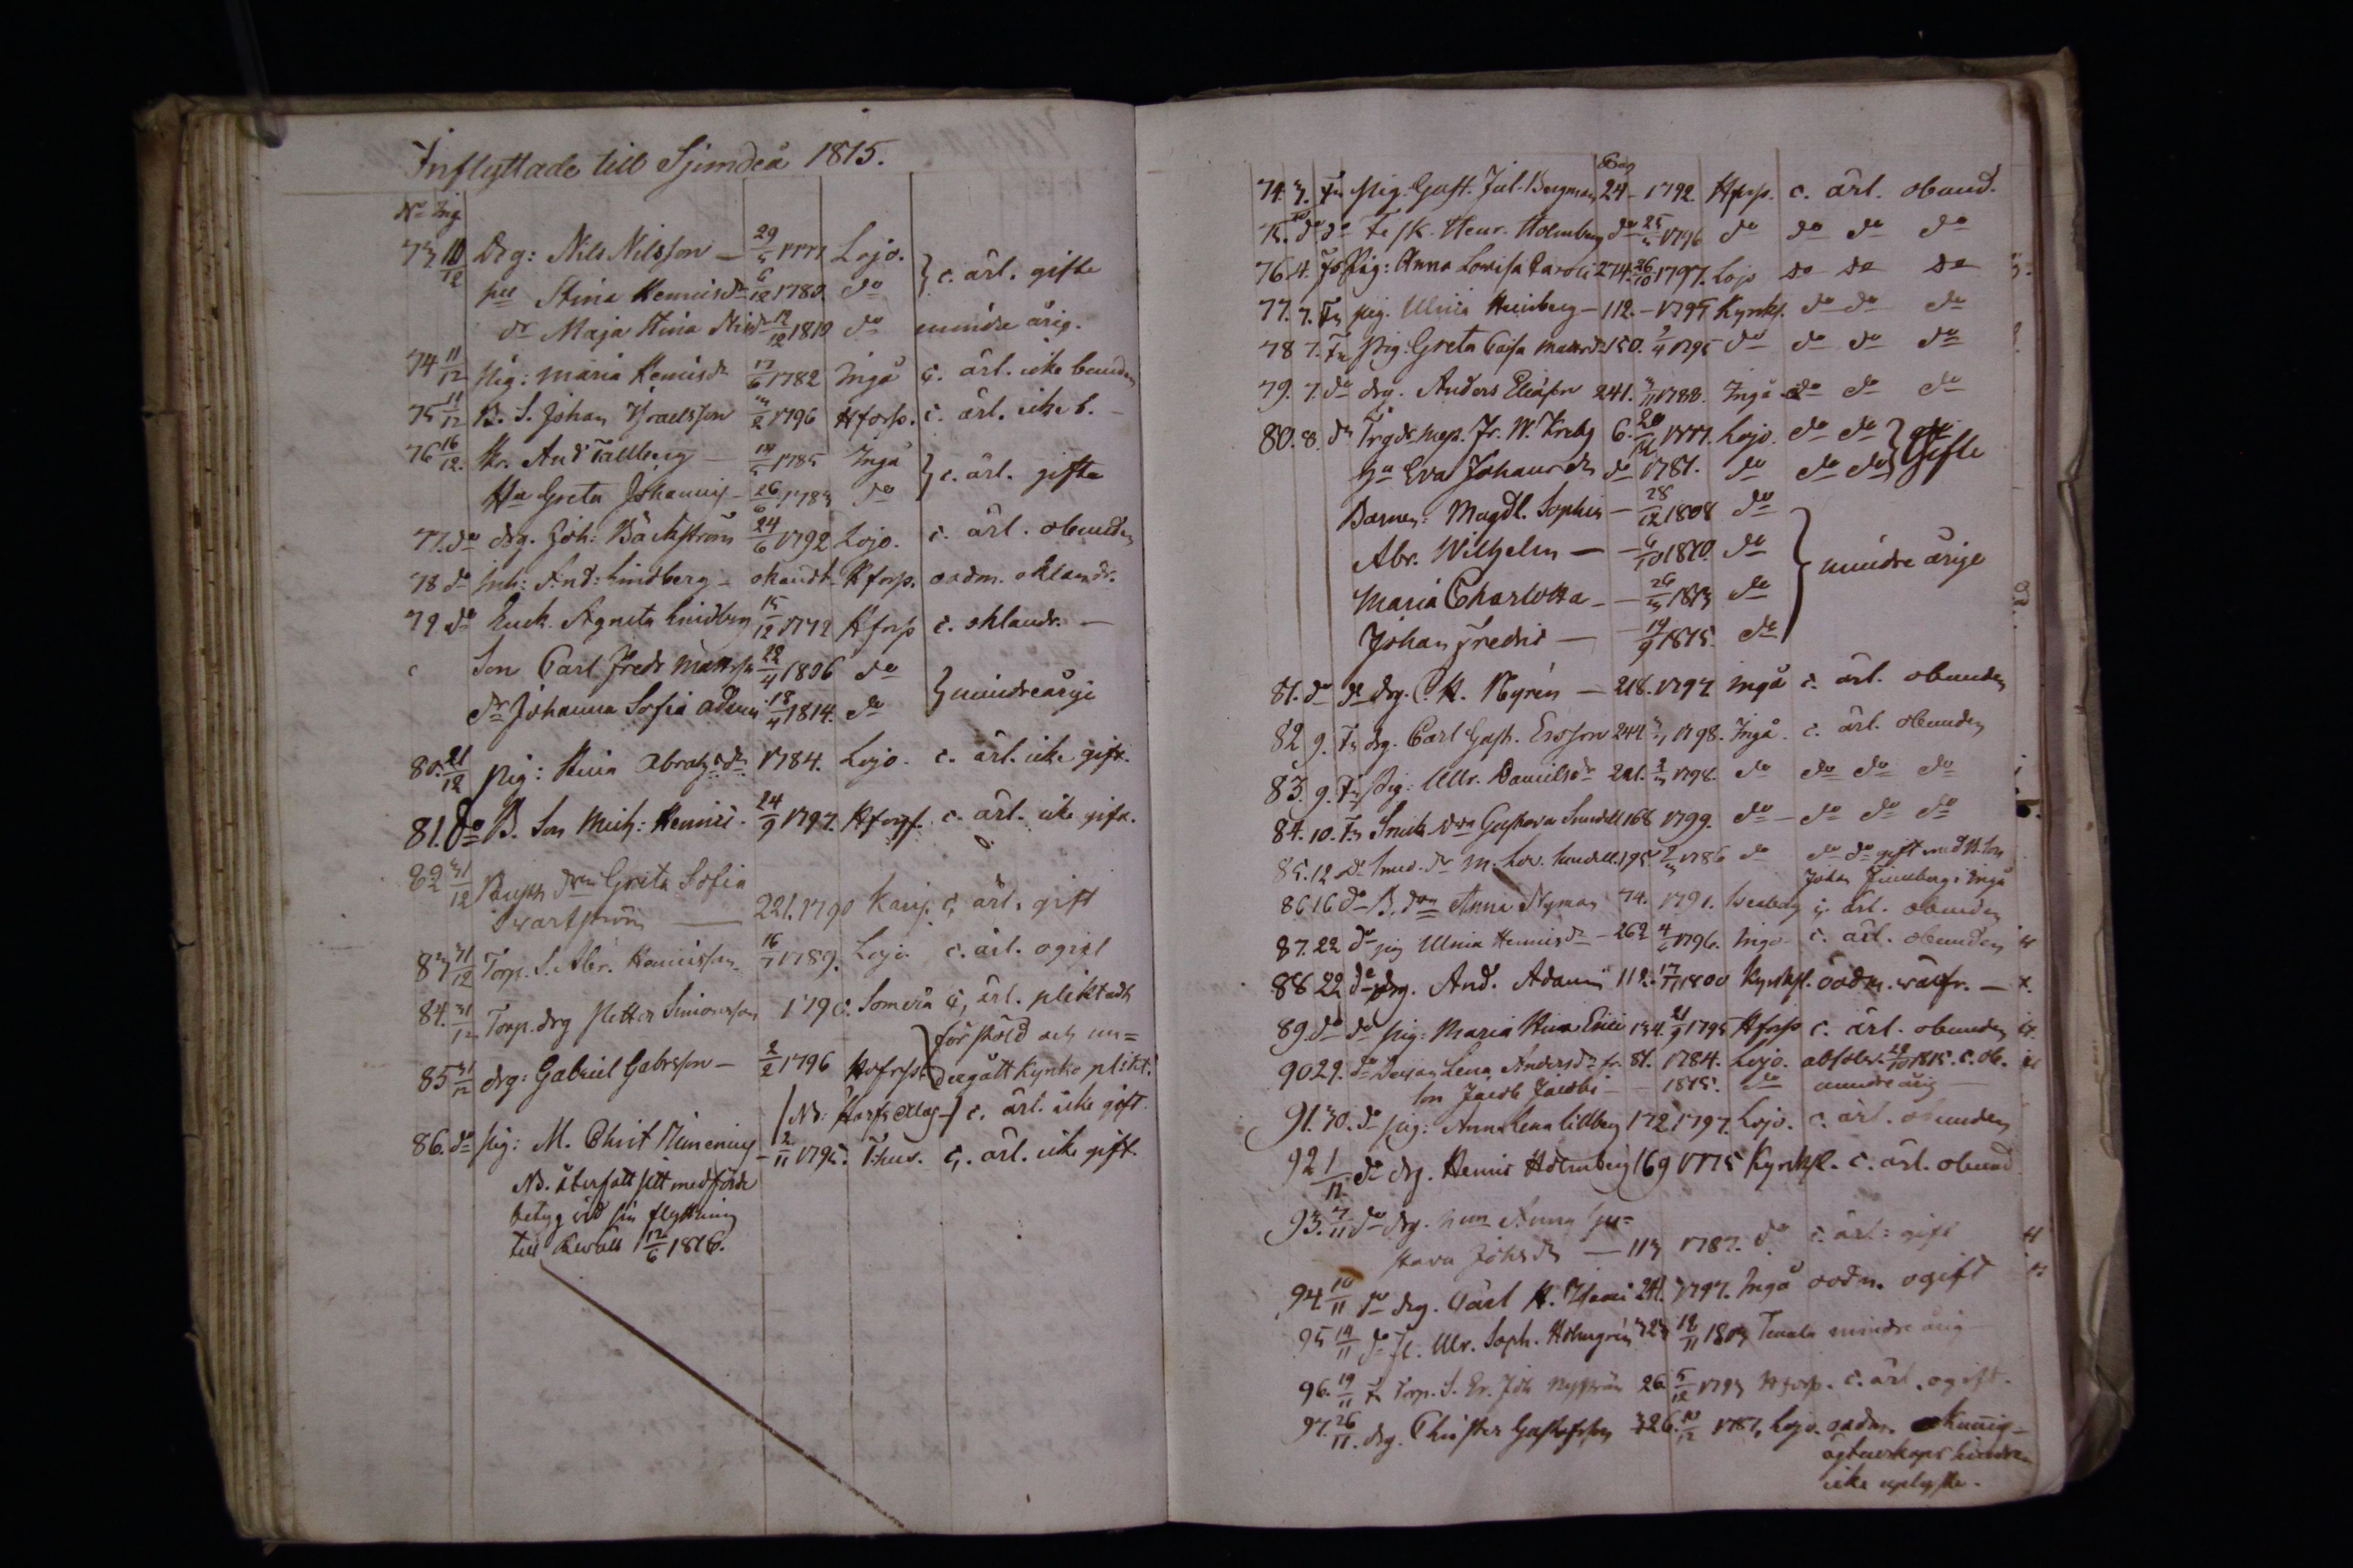 Inflyttade till Sjundeå 1815.
No Ing
73 10/12 Drg: Nils Nilsson — 29/5 1777 Lojo. } c. ärl. gifte
Stina Henricsdr 6/12 1780. do
dr Maja Stina Nilsdr 12/12 1810 do mindre årig.
74 11/12 Pig: Maria Henricsdr 17/6 1782 Ingå c. ärl. icke bunden
75 11/12 B. S. Johan Israelsson 3/2 1796 Hforss. c. ärl. icke b. –
76 16/12. Kr. And Tallberg – 1785 Ingå } c. ärl. gifte
Hu Greta Johannis – 26/6 1783 do
77. do drg. Joh: Bäckström 24/6 1792 Lojo. c. ärl. obunden
78 do Inh: And: Lindberg – okändt Hforss. oadm. oklandr.
79 do Enck. Agneta Lindberg 15/12 1772 Hforss c. oklandr. —
Son Carl Fredr Mattss 22/4 1806 do } mindreårige
dr Johanna Sofia 18/4 1814. do
80. 21/12 Pig: Stina Abrahsdr 1784. Lojo. c. ärl. icke gift.
81. do B. Son Mich: Henrici. 24/9 1797. Hforss. c. ärl. icke gift.
82 31/12 Greta Sofia
Svartström — 221. 1790 Karis. c, ärl. gift
83 31/12 Torp. S. Abr. Henricsson 16/7 1789. Lojo. c. ärl. ogift
84. 31/12 Torp. drg Petter Simonsson 1790. Somerå c, ärl. pliktadt
för stöld och un=
85 31/12 drg: Gabriel Gabrsson – 2/2 1796 Hforss. dergått kyrko plikt.
c. ärl. icke gift.
86. do pig: M. Christ – 2/11 1795. c. ärl. icke gift.
NB. återfått sitt medförde
betyg vid sin flyttning
till 12/6 1816.
74. 3. Fr Pig. Gust. Jul. Bergman 24 – 1792. Hforss. c. ärl. obund.
75. do do Henr. Holmberg do 25/5 1796 do do do do
76. 4. Pig: Anna Lovisa Caroli 274. 26/10 1797. Lojo do do do
77. 7. Fr pig. Ulrica Heinberg – 112. – 1795 Kyrksl. do do do
78 7. Fr Pig: Greta Caisa Mattsdr 150. 9/4 1795 do do do do
79. 7. do drg. Anders Eliasson 241. 3/11 1788. Ingå. do do do
80. 8. do Fr. W. 6. 20/12 1777. Lojo. do do } Gifte
Hu Eva Johansdr do 1781. do do do
Barnen: Magdl. Sophia – 28/12 1808 do } mindre årige
Abr. Wilhelm — 6/10 1810. do
Maria Charlotta – 26/3 1813 do
Johan Fredric — 19/9 1815. do
81. do do drg. C. H. Nyrén — 218. 1797 Ingå c. ärl. obunden
82 9. Fr drg. Carl Gust. Ersson 244 1798. Ingå. c. ärl. obunden
83. 9. Fr Pig: Ulr. Danielsdr 221. 2/3 1798. do do do do
84. 10. Fr Gustava Sundell 168 1799. do – do do do
85. 12 do Smed. dr M. Lov. Sundell. 195 2/3 1786 do do do gift med B. Son
Johan i Ingå
86 16 do B. Anna Nyman 74. 1791. c. ärl. obunden
87. 22 do pig Ulrica Henricsdr – 262 4/6 1796. Ingå c. ärl. obunden
88 22 do drg. And. Adami 112. 17/7 1800 Kyrksl. oadm. –
89. do do pig: Maria Stina Erici 134. 21/9 1795 Hforss c. ärl. obunden
90 29. do Lena Andersdr 81. 1784. Lojo. absolv. 1815. c. ob.
son Jacob Jacobi – 1815. do mindre årig –
91. 30. do pig: Anna Lena Lillberg 172 1797. Lojo. c. ärl. obunden
92 1/11 do drg. Henric Holmberg 169 1775 Kyrksl. c. ärl. obund
93. 7/11 do drg. hun Anna Gu=
stava Johsdr — 113 1787. do c. ärl: gift
94 10/11 do drg. Carl H. 241. 1797. Ingå oadm. ogift
95 14/11 do Ulr. Soph. Holmgrén 323 12/11 1803 Tenala mindre årig
96. 19/11 Fr Torp. S. Er. Joh Nyström 26. 5/12 1793 Hforss. c. ärl. ogift.
97. 26/11. drg. Christer Gustafsson 326. 10/12 1787, Lojo. oadm.
ägtenskaps hinder
icke